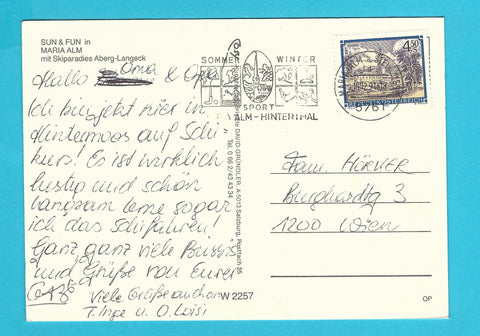 SUN & FUN in
MARIA ALM
mit Skiparadies Aberg-Langeck
Hallo Oma & Opa
Ich bin jetzt hier in
Hintermoos auf Schi
kurs! Es ist wirklich
lustig und schön
langsam lerne sogar
ich das Schifahren!
Ganz, ganz viele Bussis
und Grüße von Eurer
Viele Grüße auch von
T. Inge u. O. Loisi
SOMMER WINTER
SPORT
ALM-HINTERTHAL
4.50
REPUBLIK ÖSTERREICH
5761
A-5013 Salzburg, Postfach 36
Tel. 0 66 2/43 43 34
W 2257
Fam. HÖRNER
Burghardtg 3
1200 Wien
OP